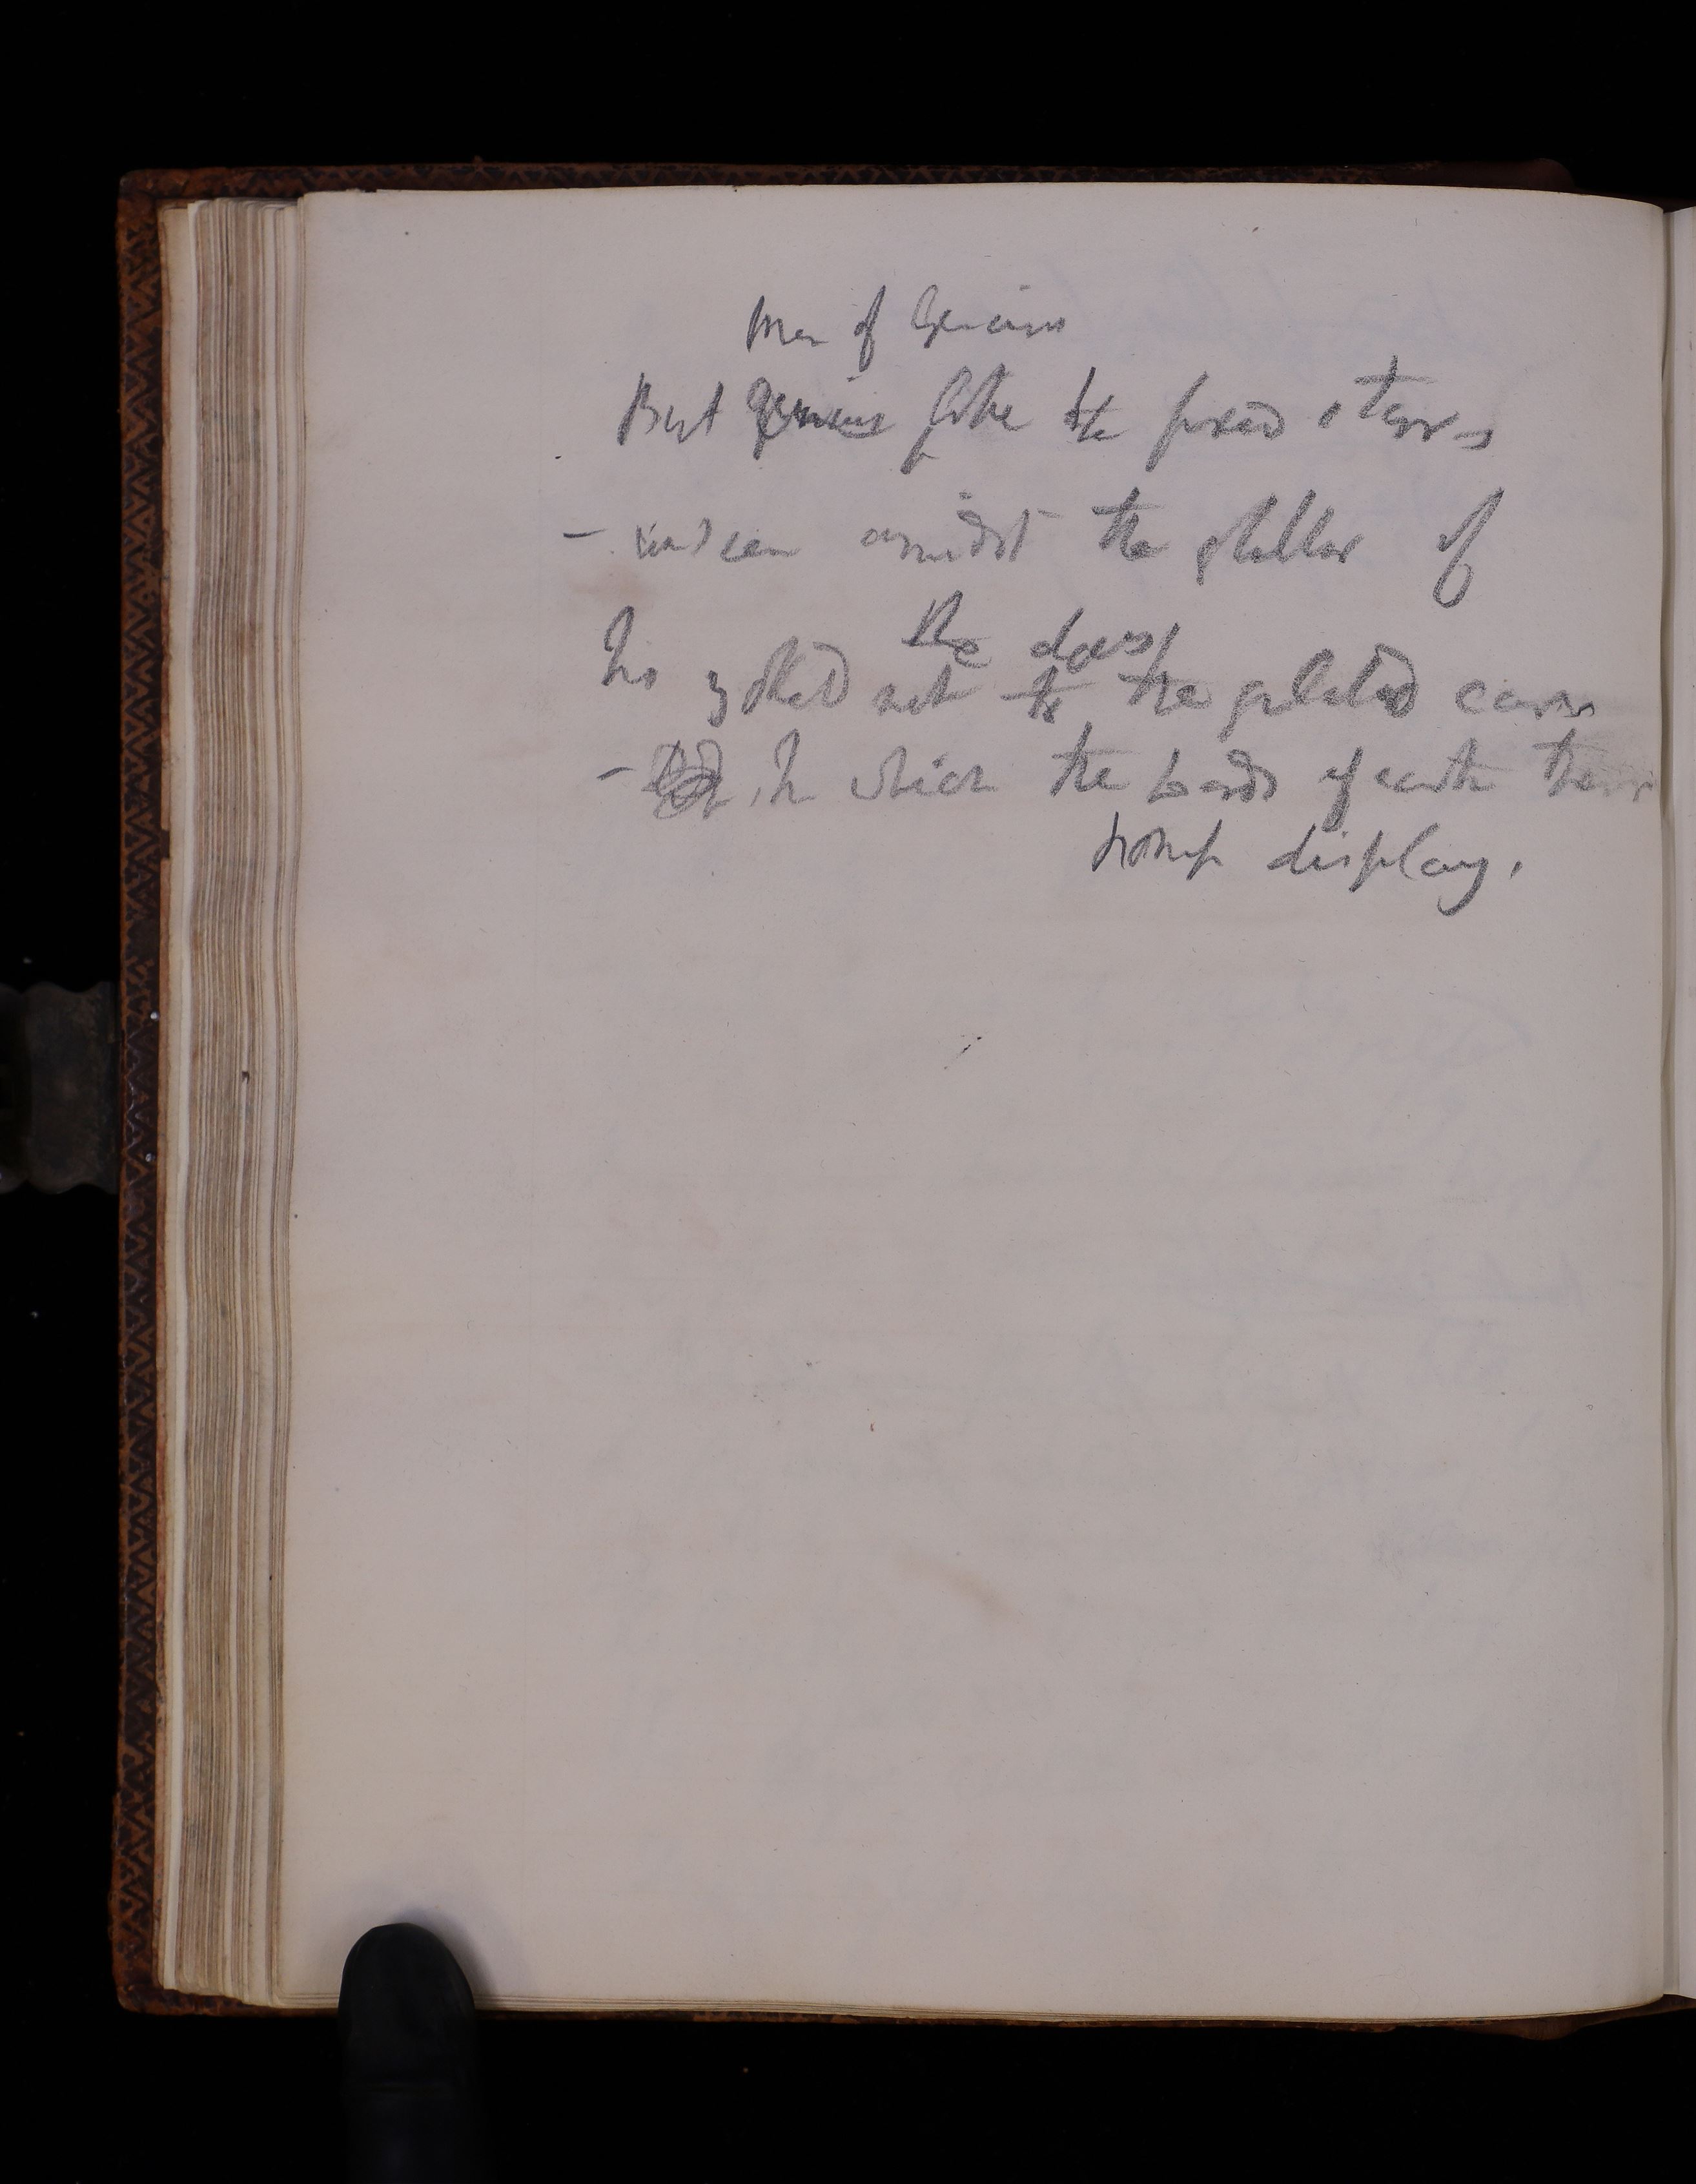 Men of Genius
But genius like the fixed stars
- unseen amidst the glitter of
the does
his not to the gilded cars
- In which the Lords of earth their
pomp display.